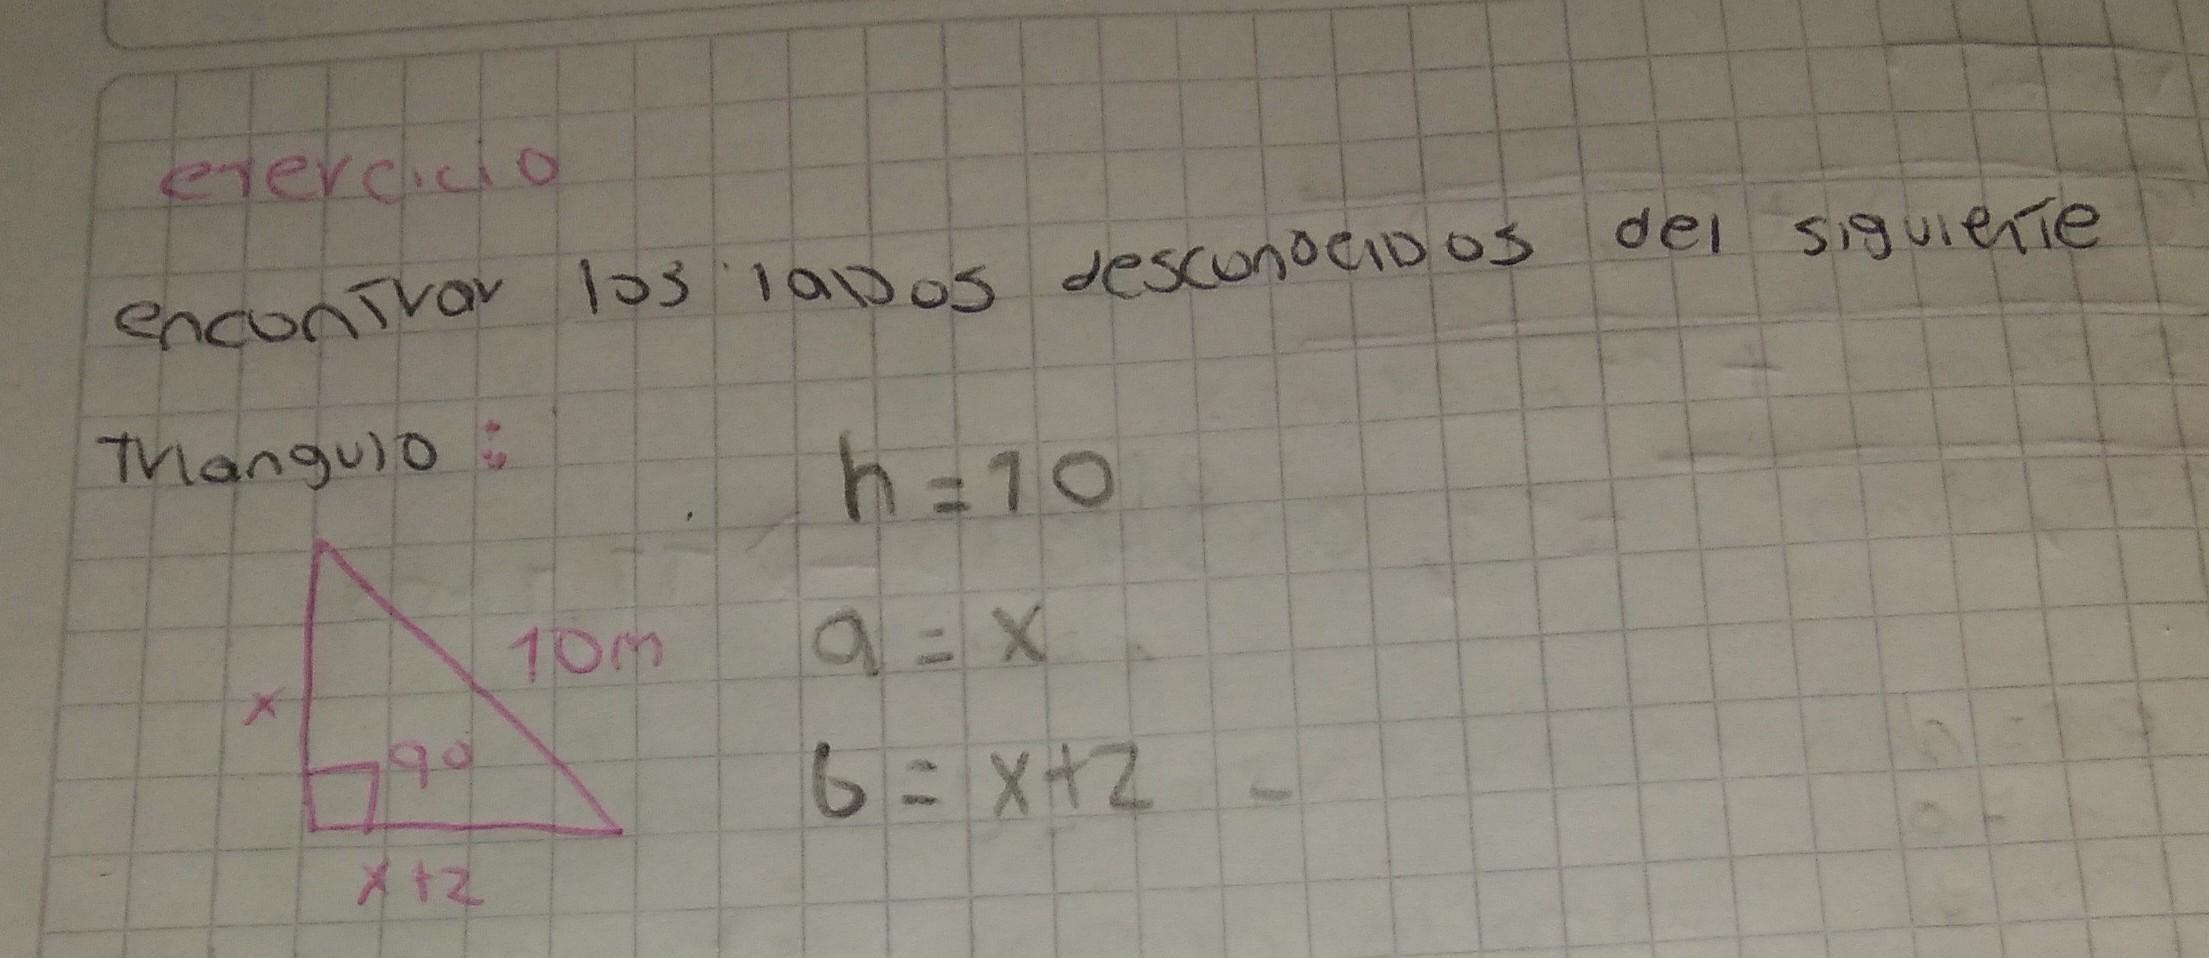 ejercicio
encontrar los lados desconocidos del siguiente
Triangulo :
h = 10
10m
a = x
x
90
b = x+2
x+2